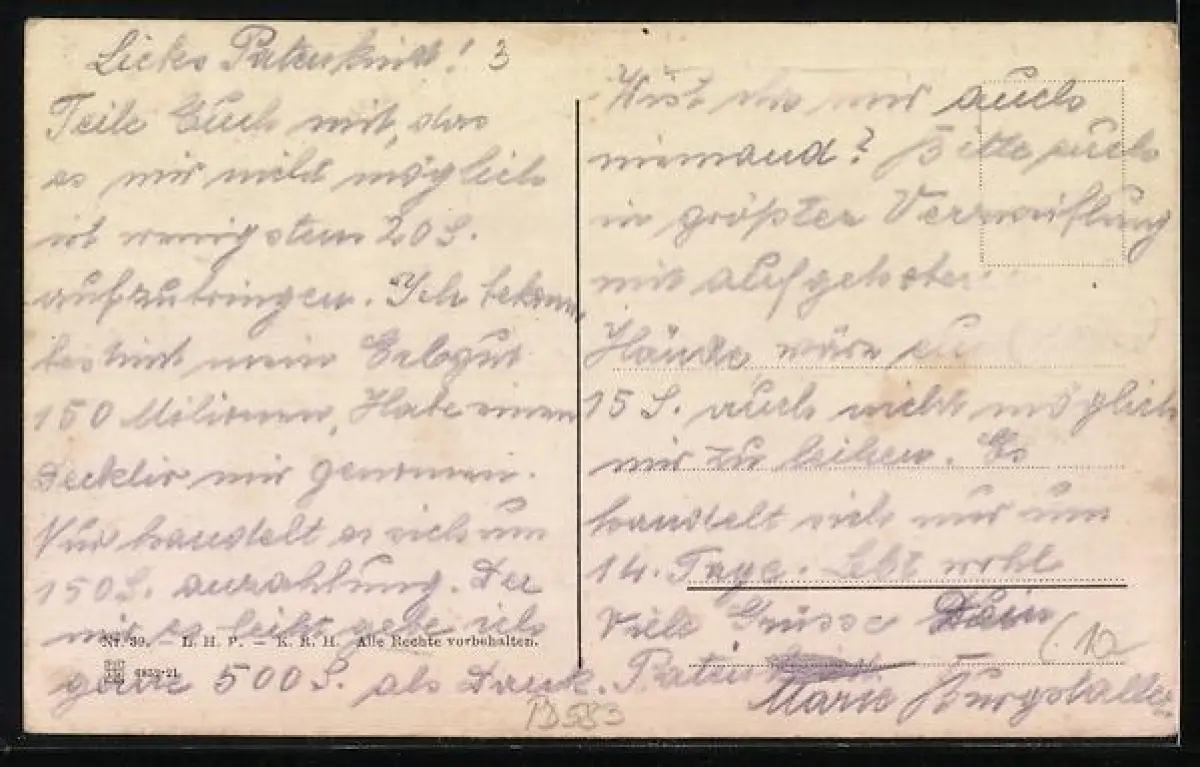 Liebes Patenkind! 3
Teile Euch mit, das
es mir nicht möglich
ist wenigstens 20 S.
aufzubringen. Ich bekomme
bestimt mein Erbgut
150 Milionen, Habe einen
genommen.
Nur handelt es sich um
150 S anzahlung. Der
mir es leiht gebe ich
gerne 500 S. als Dank.
Nr. 39. — L. H. P. — K. R. H. Alle Rechte vorbehalten.
Wist ihr mir auch
niemand? Bitte euch
in größter Verzweiflung
mit aufgehobenen
Hände, wäre
15 S. auch nicht möglich
mir zu leihen. Es
handelt sich nur um
14. Tage. Lebt wohl
Viele Grüsse Dein
Paten
Marie Burgstaller
(10